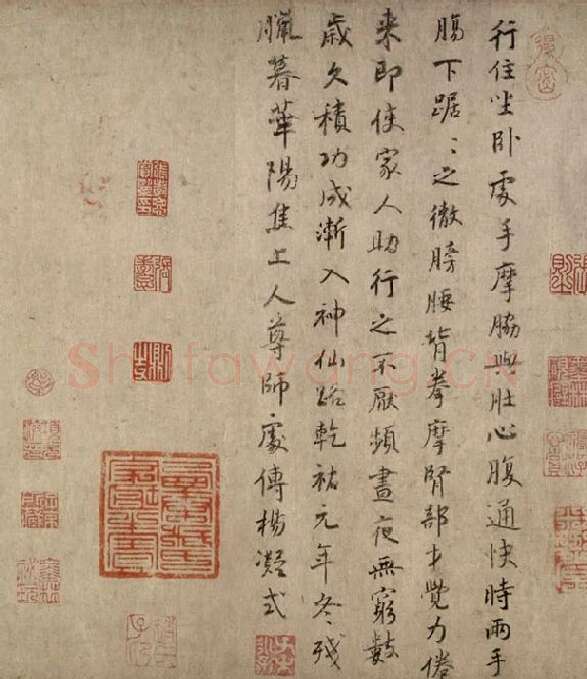 行住坐卧處手摩脇與肚心腹通快時兩手
腸下踞〻之徹膀腰背拳摩腎部才覺力倦
来即使家人助行之不厭頻晝夜無窮數
歲久積功成漸入神仙路乾祐元年冬残
臘暮華陽焦上人尊師處傳楊凝式
Shufawang.CN